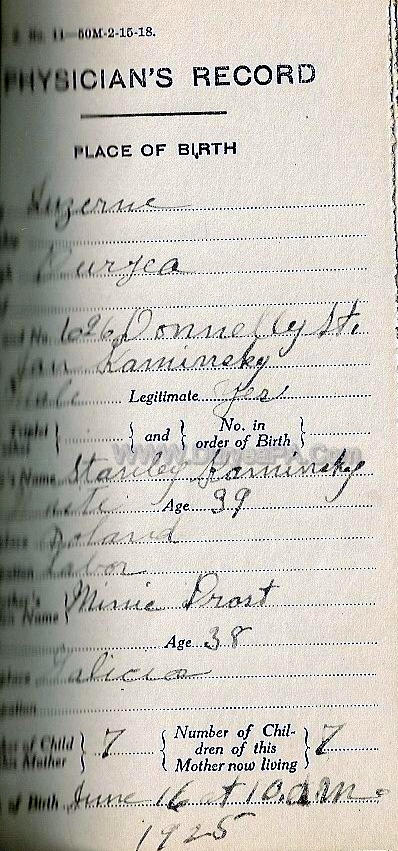 No. 11—50M-2-15-18.
PHYSICIAN'S RECORD
PLACE OF BIRTH
Luzerne
Duryea
and No. 626 Donnelly St.
Jan Kaminsky
Male Legitimate Yes
Triplet } and { No. in order of Birth }
's Name Stanley Kaminsky
White Age 39
Poland
Labor
Mother's Name } Minie Prost
Age 38
Galicia
of Child Mother } 7 { Number of Children of this Mother now living } 7
of Birth June 16 at 10 a.m.
1925